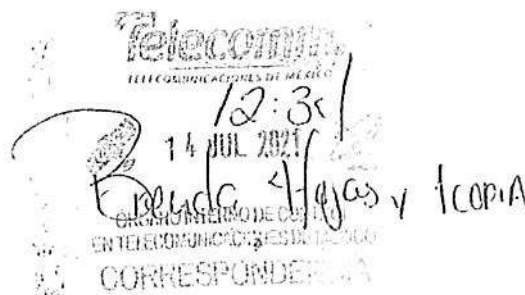 Telecomm
TELECOMUNICACIONES DE MÉXICO
12:3
14 JUL 2021
Brenda 4 Hojas y 1 copia
ÓRGANO INTERNO DE CONTROL
EN TELECOMUNICACIONES DE MÉXICO
CORRESPONDENCIA